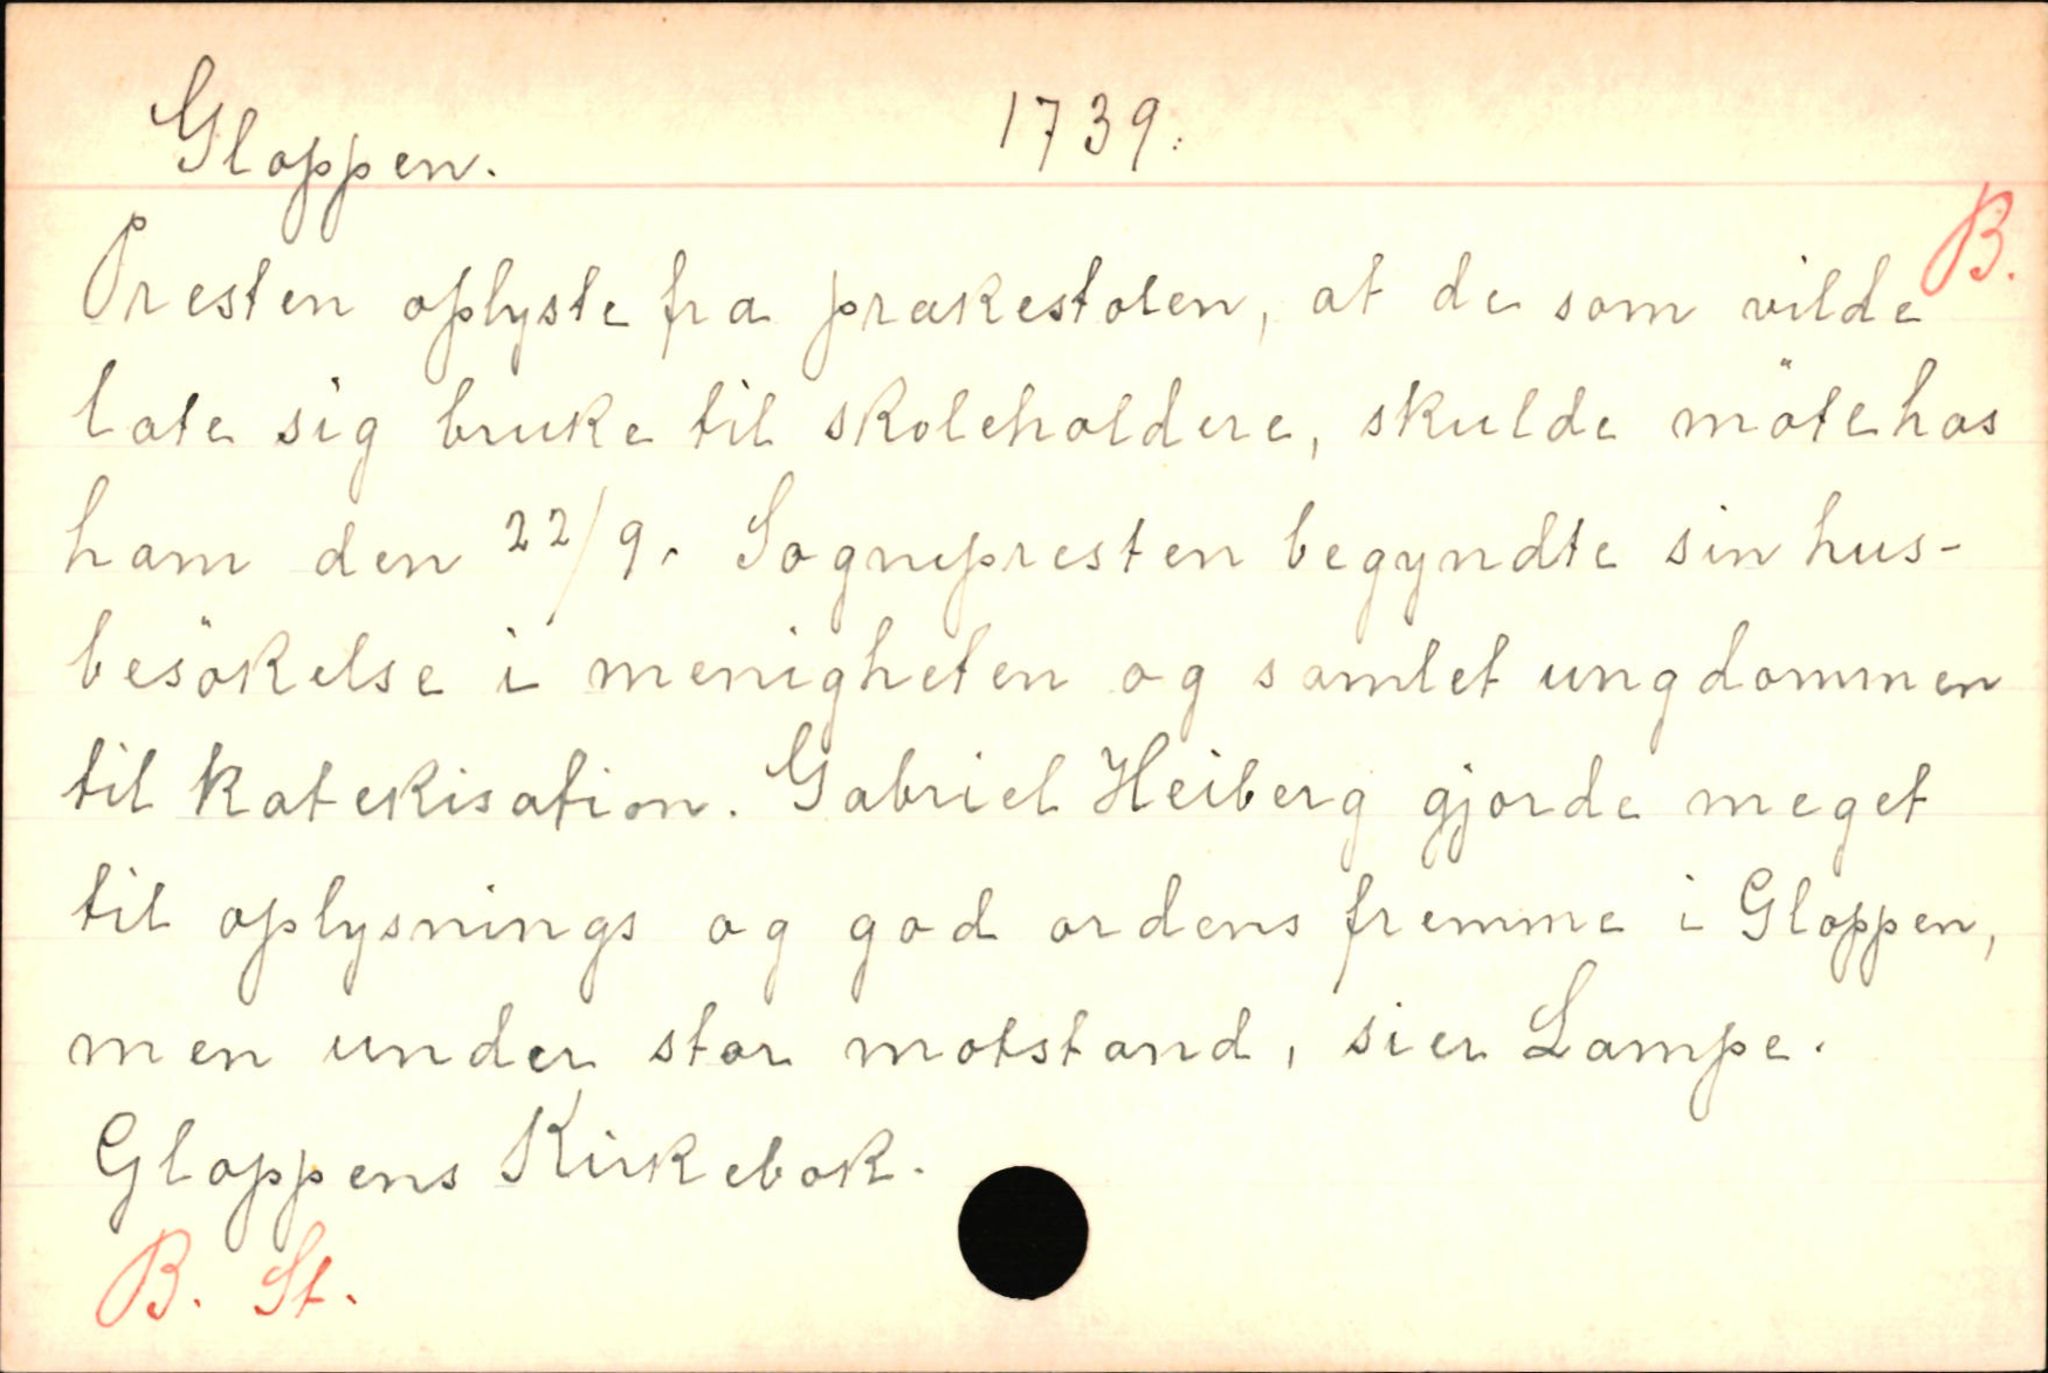 Gloppen. 1739.
B.
Presten oplyste fra prækestolen, at de som vilde
late sig bruke til skoleholdere, skulde möte hos
ham den 22/9. Sognepresten begyndte sin hus-
besökelse i menigheten og samlet ungdommen
til katekisation. Gabriel Heiberg gjorde meget
til oplysnings og god ordens fremme i Gloppen,
men under stor motstand, sier Lampe.
Gloppens Kirkebok.
B. St.